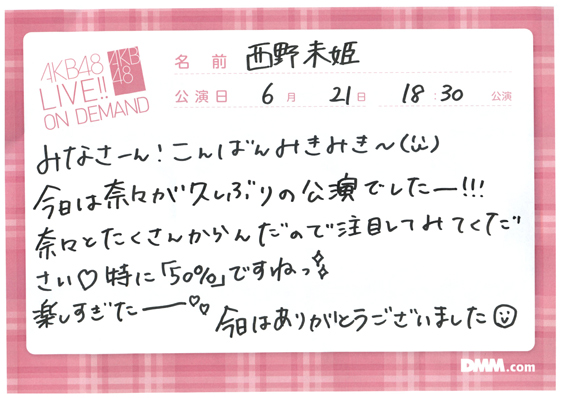 AKB48
LIVE!!
ON DEMAND
AKB
48
名前 西野未姫
公演日 6月 21日 18:30 公演
みなさーん！こんばんみきみき〜(¨)
今日は奈々が久しぶりの公演でしたー!!!
奈々とたくさんからんだので注目してみてくだ
さい♡特に「50%」ですねっ✧
楽しすぎたー♡♡
今日はありがとうございました☺
DMM.com